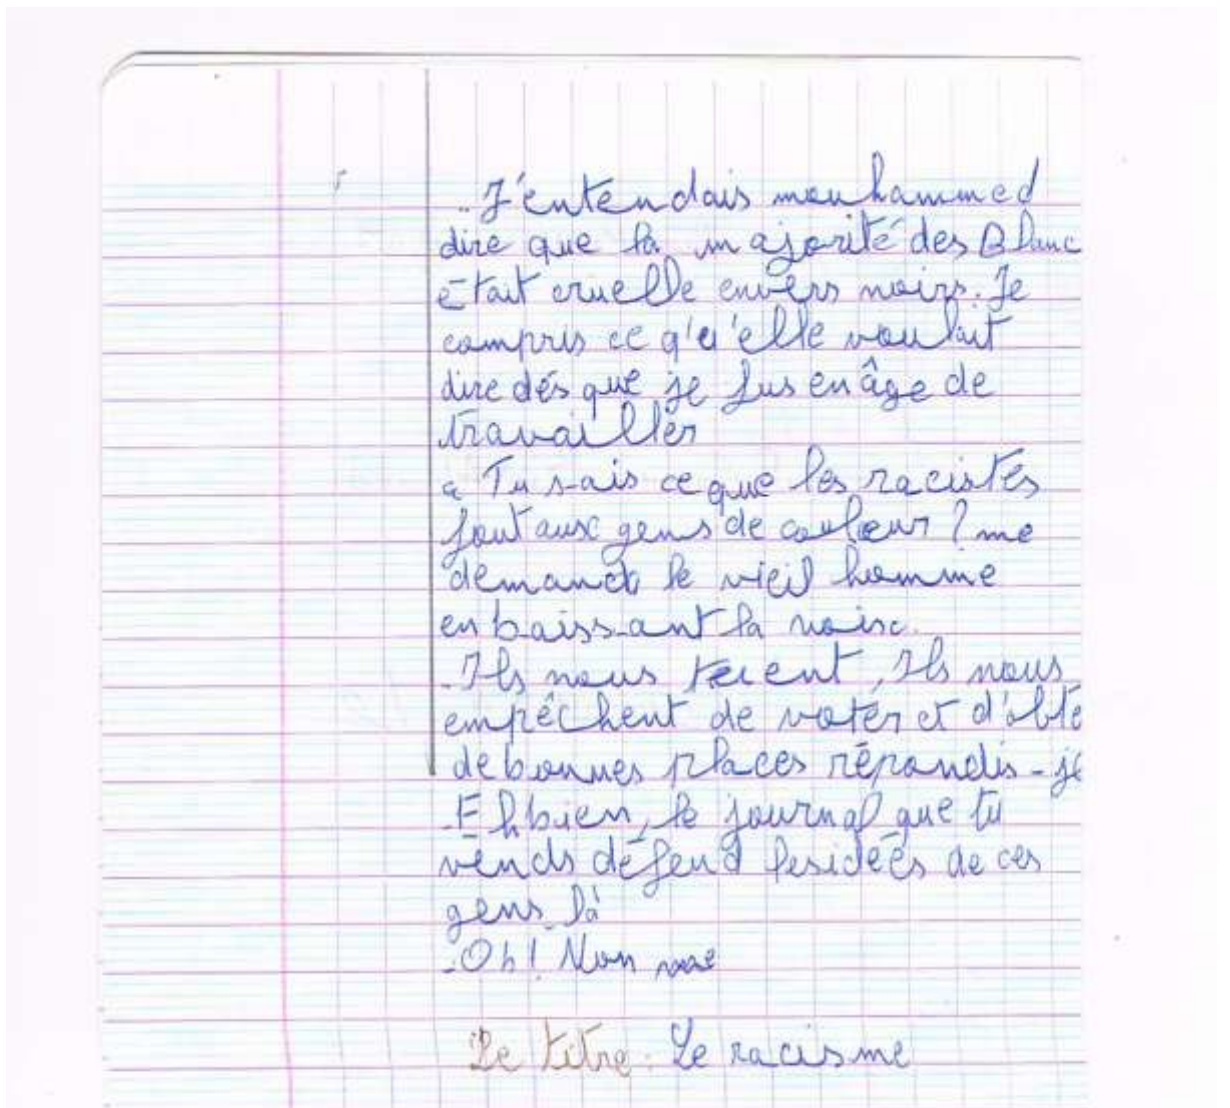 J'entendais mouhammed
dire que la majorité des Blanc
était cruelle envers noirs. Je
compris ce q'u'elle voulait
dire dés que je fus en âge de
travailler
" Tu sais ce que les racistes
font aux gens de couleur ? me
demanda le vieil homme
en baissant la voix.
-Ils nous tuent, Ils nous
empêchent de voter et d'obte
de bonnes places répondis-je
-Eh bien, le journal que tu
vends défend les ideés de ces
gens là
-Oh! Non
Le titre: Le racisme